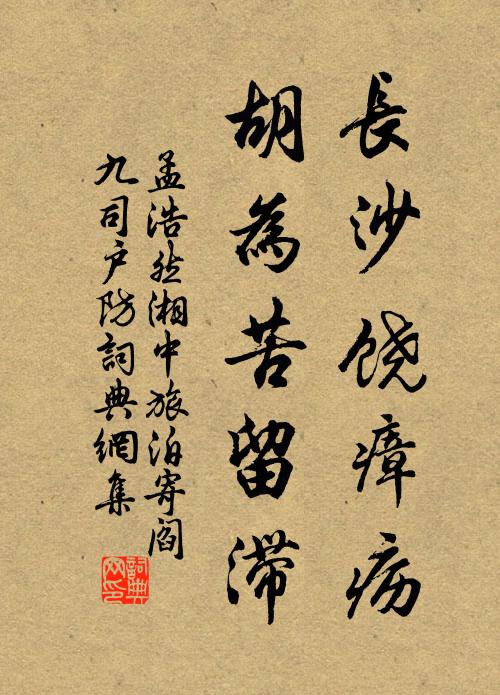 長沙饶瘴疠
胡為苦留滞
孟浩然湘中旅泊寄閻
九司户防詞典網集
詞典网印